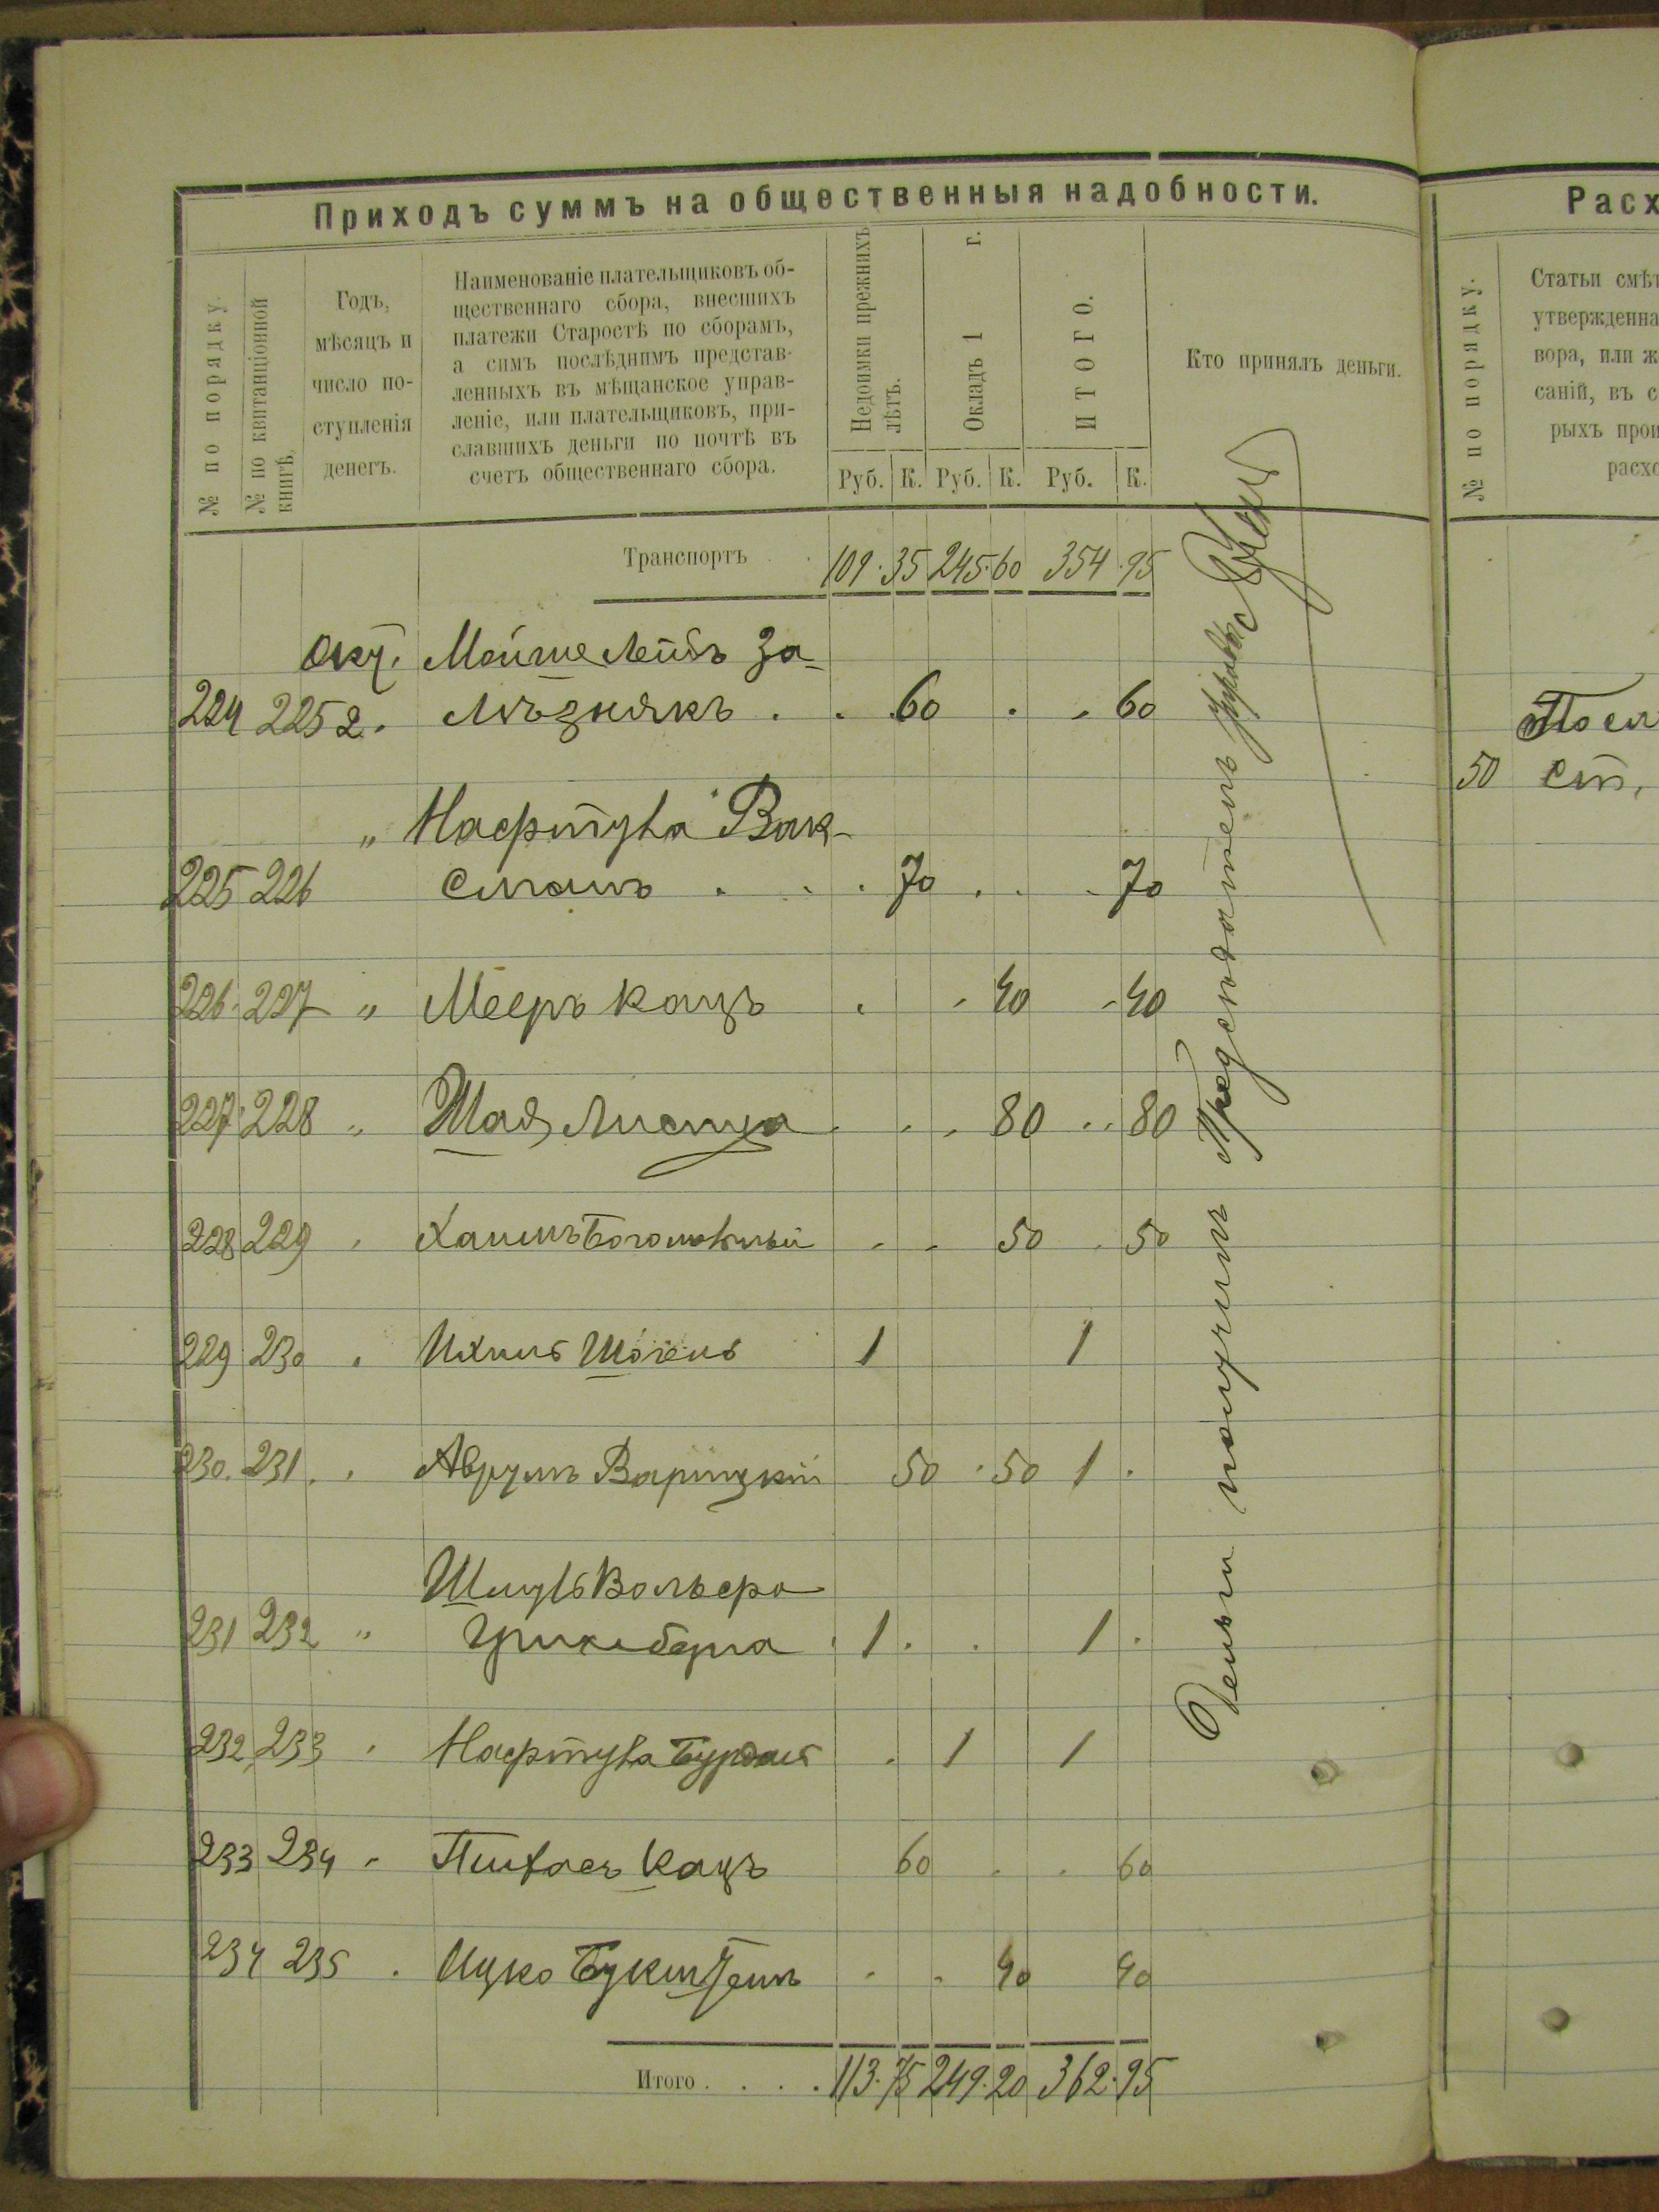 Приходъ суммъ на общественныя надобности.
№ по порядку.
№ по квитанціонной
книгѣ.
Годъ,
мѣсяцъ и
число по-
ступленія
денегъ.
Наименованіе плательщиковъ об-
щественнаго сбора, внесшихъ
платежи Старостѣ по сборамъ,
а симъ послѣднимъ представ-
ленныхъ въ мѣщанское управ-
леніе, или плательщиковъ, при-
славшихъ деньги по почтѣ въ
счетъ общественнаго сбора.
Недоимки прежнихъ
лѣтъ.
Окладъ 1 г.
ИТОГО.
Кто принялъ деньги.
Руб. К. Руб. К. Руб. К.
Транспортъ 109. 35 245. 60 354. 95
Окт. Мойше Лейбъ За-
224 225 2. лѣзнякъ . . 60 . . 60
„ Нафтула Вак-
225 226 сманъ . . . 70 . . . 70
226. 227 „ Мееръ Кацъ . . 40 . 40
227. 228 „ Шая Листца . . . 80 . . 80
228 229 . Хаимъ Богомольный . . 50 . 50
229 230 . Ихиль 1 1
230. 231. . Аврумъ Варшизкій 50 . 50 1 .
Шмуль Вольфа
231 232 „ Гринберга . 1 . . 1 .
232 233 . Нафтула . 1 1
233 234 . Пинхасъ Кацъ 60 . . 60
234 235 . Ицко Букштейнъ . . 40 40
Итого . . . . 113. 75 249. 20 362. 95
Деньги получилъ Предсѣдатель
Расх
№ по порядку.
Статьи смѣт
утвержденна
вора, или ж
саній, въ с
рыхъ прои
расхо
Посл
50 ст.